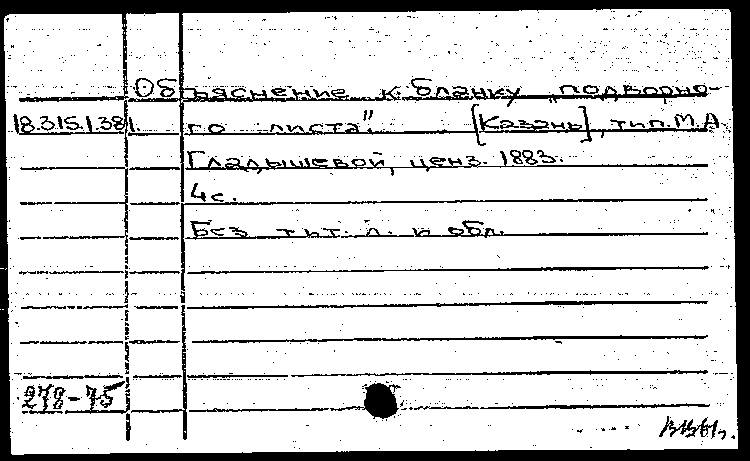 Объяснение к бланку „подворно-
18.315.1.381. го листа". [Казань], тип. М.А.
Гладышевой, ценз. 1883.
4 с.
Без тит. л. и обл.
278-75